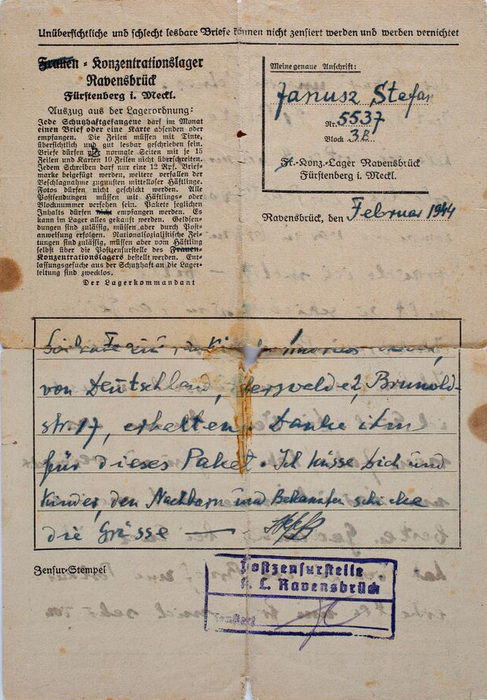 Unübersichtliche und schlecht lesbare Briefe können nicht zensiert werden und werden vernichtet
Frauen - Konzentrationslager
Ravensbrück
Fürstenberg i. Meckl.
Auszug aus der Lagerordnung:
Jede Schutzhaftgefangene darf im Monat
einen Brief oder eine Karte absenden oder
empfangen. Die Zeilen müssen mit Tinte,
übersichtlich und gut lesbar geschrieben sein.
Briefe dürfen normale Seiten mit je 15
Zeilen und Karten 10 Zeilen nicht überschreiten.
Jedem Schreiben darf nur eine 12 Rpf. Brief-
marke beigefügt werden, weitere verfallen der
Beschlagnahme zugunsten mittelloser Häftlinge.
Fotos dürfen nicht geschickt werden. Alle
Postsendungen müssen mit Häftlings- oder
Blocknummer versehen sein. Pakete jeglichen
Inhalts dürfen nicht empfangen werden. Es
kann im Lager alles gekauft werden. Geldsen-
dungen sind zulässig, müssen aber durch Post-
anweisung erfolgen. Nationalsozialistische Zei-
tungen sind zulässig, müssen aber vom Häftling
selbst über die Postzensurstelle des Frauen-
Konzentrationslagers bestellt werden. Ent-
lassungsgesuche aus der Schutzhaft an die Lager-
leitung sind zwecklos.
Der Lagerkommandant
Meine genaue Anschrift:
Janusz Stefan
Nr. 5537
Block 3B.
F.-Konz.-Lager Ravensbrück
Fürstenberg i. Meckl.
Ravensbrück, den Februar 1944
von Deutschland, Brunold-
str. 17, erhalten. Danke ihm
für dieses Paket. Ich küsse Dich und
Kinder, den Nachbarn und Bekannten schicke
die Grüsse —
Zensur-Stempel
Postzensurstelle
K. L. Ravensbrück